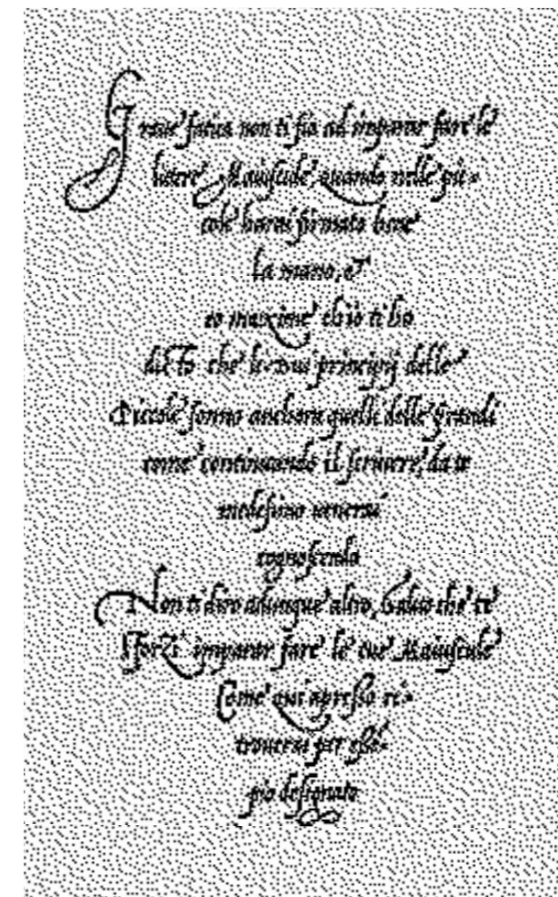 Graue fatica non ti fia ad imparar fare le
littere Maiuscule, quando nelle pic-
cole harai firmato bene
la mano, et
eo maxime ch'io ti ho
dicto che li dui principij delle
Piccole sonno anchora quelli delle Grandi
come continuando il scriuere, da te
medesimo uenerai
cognoscendo
Non ti diro adunque altro, Saluo che te
sforzi imparar fare le tue Maiuscule
Come qui apresso ri-
trouerai per essem-
pio designato